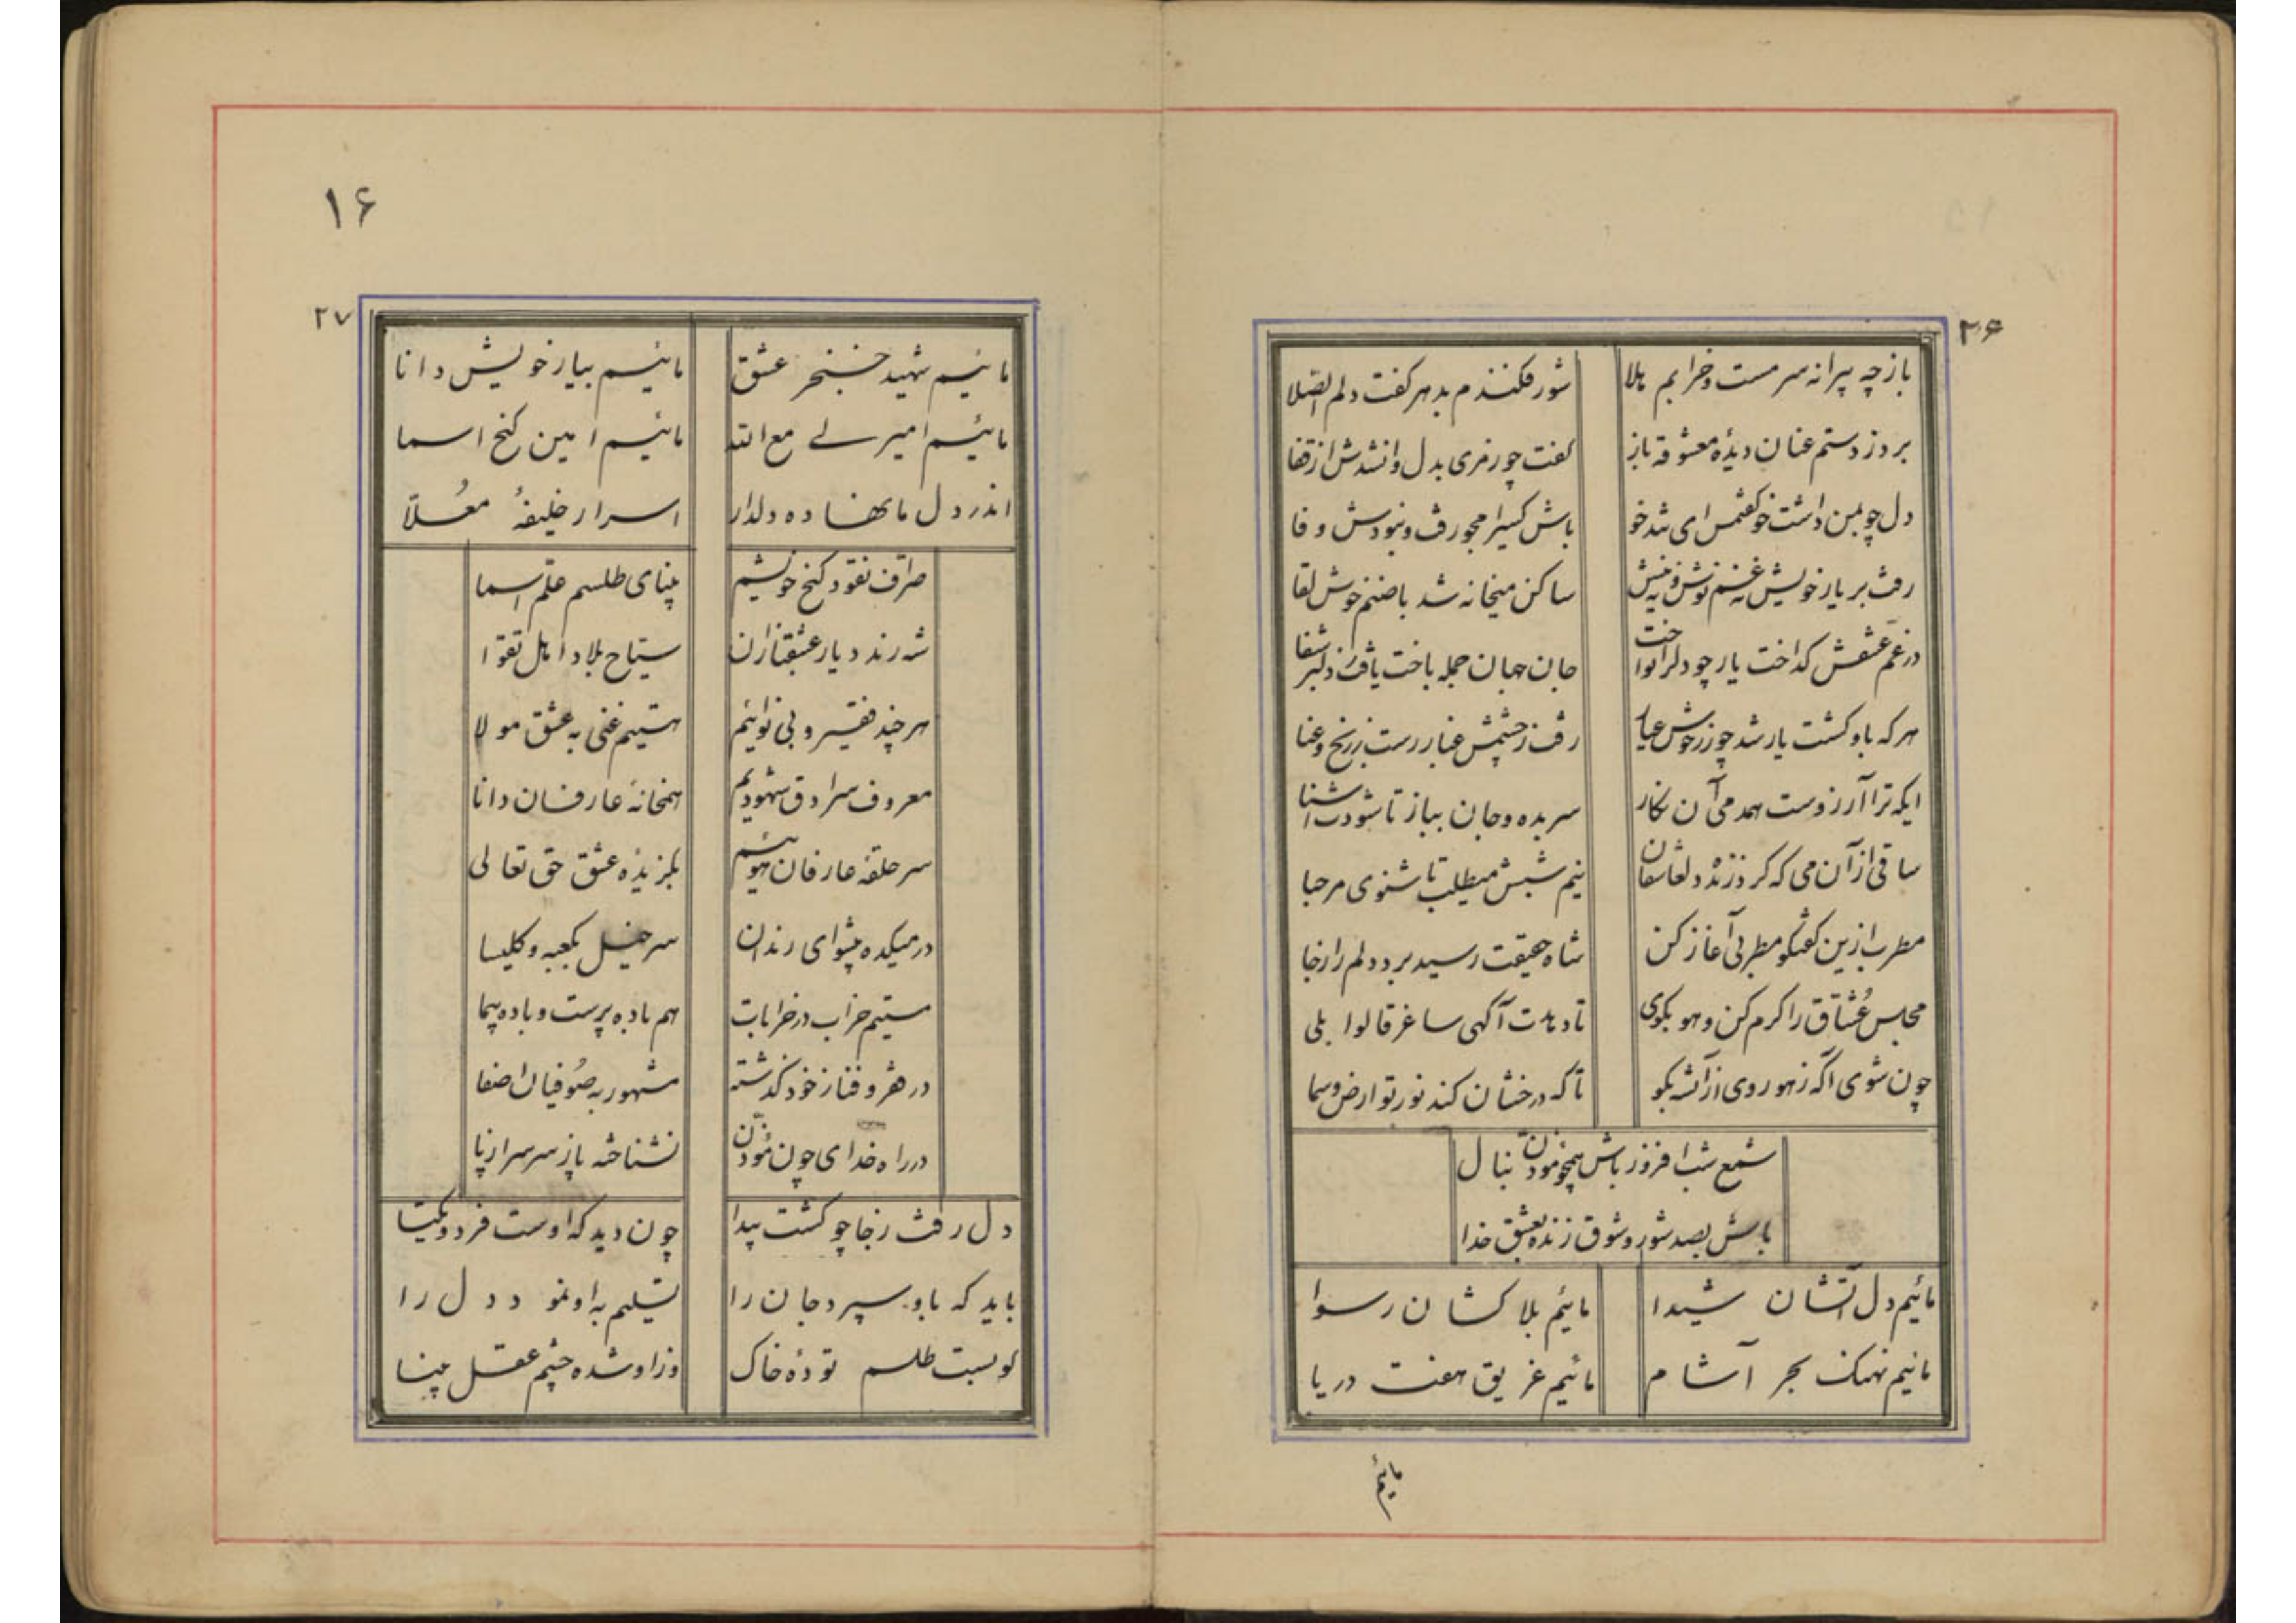 ۲۶
باز چه پیرانه سرمست و خرابم هلا شور فکندم بدهر گفت دلم الصلا
برد ز دستم عنان دیدهٔ معشوقه باز گفت چو رمزی بدل وانشدش از قفا
دل چو بمن داشت خو گفتمش ای شدخو باش کسیرا مجو رفت و نبودش وفا
رفت بر یار خویش غم نوش ساکن میخانه شد با صنم خوش لقا
در غم عشقش گداخت یار چو دلرا نواخت جان جهان جمله باخت یافت ز دلبر شفا
هر که باو گشت یار شد چو زر خوش عیار رفت ز چشمش غبار رست ز رنج و عنا
ایکه ترا آرزوست همدمی آن نگار سر بده و جان بباز تا شودت آشنا
ساقی از آن می که کرد زنده دل عاشقان نیم شبش میطلب تا شنوی مرحبا
مطرب ازین گفتگو مطربی آغاز کن شاه حقیقت رسید برد دلم را ز جا
مجلس عُشّاق را کرم کن و هو بگوی تا دهدت آگهی ساغر قالوا بلی
چون شوی آگه ز هو روی از آتش بگو تا که درخشان کند نور تو ارض و سما
شمع شب افروز باش همچو مؤذّن بنال
باش بصد شور و شوق زنده بعشق خدا
مائیم دل آتشان شیدا مائیم بلا کشان رسوا
مائیم نهنک بحر آشام مائیم غریق هفت دریا
مائیم
۱۶
۲۷
مائیم شهید خنجر عشق مائیم بیار خویش دانا
مائیم امیر لی مع الله مائیم امین کنج اسما
اندر دل ما نهاده دلدار اسرار خلیفهٔ مُعلّا
صراف نقود کنج خویشیم بینای طلسم علّم اسما
شه رند دیار عشقبازان سیّاح بلاد اهل تقوا
هر چند فقیر و بی نوائیم هستیم غنی به عشق مولا
معروف سرادق شهودیم همخانهٔ عارفان دانا
سر حلقهٔ عارفان هوئیم بگزیدهٔ عشق حق تعالی
در میکده پیشوای رندان سر خیل بکعبه و کلیسا
مستیم خراب در خرابات هم باده پرست و باده پیما
در فقر و فنا ز خود گذشته مشهور به صُوفیان اصفا
در راه خدای چون مُؤذّن نشناخته باز سر سر از پا
دل رفت ز جا چو گشت پیدا چون دید که اوست فرد و یکتا
باید که باو سپرد جان را تسلیم به او نمود دل را
کو بست طلسم تودهٔ خاک وز او شده چشم عقل بینا